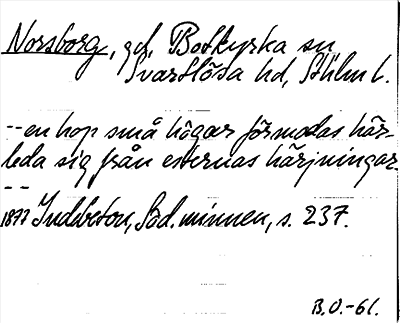 Norsborg, gd, Botkyrka sn
Svartlösa hd, Sthlm l.
--en hop små högar förmodas här-
leda sig från esternas härjningar.
--
1877 Indebetou, Söd. minnen, s. 237.
B.O.-61.